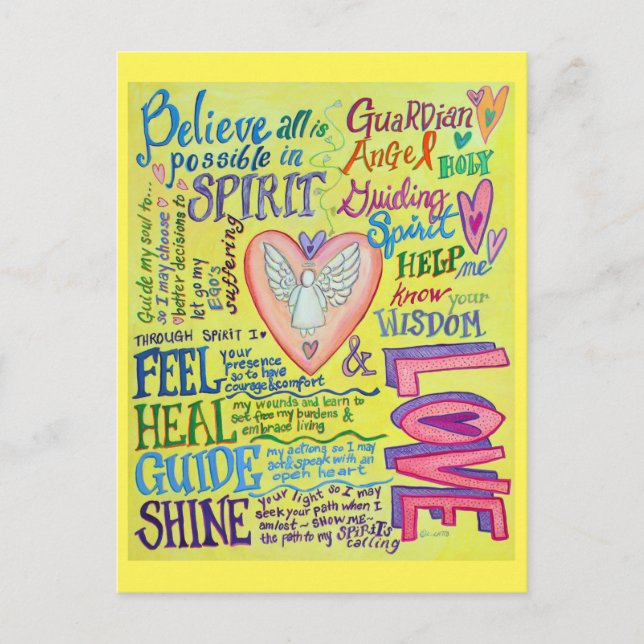 Believe all is
possible in
SPIRIT
GuaRDian
AngeL
HOLY
Guiding
Spirit
HELP me
know your
WISDOM
&
LOVE
Guide my soul to...
so I may choose
better decisions to
let go my
EGO's
suffering
THROUGH SPIRIT I
FEEL your
presence
so to have
courage & comfort
HEAL my wounds and learn to
set free my burdens &
embrace living
GUIDE my actions so I may
act & speak with an
open heart
SHINE your light so I may
seek your path when I
am lost ~ SHOW ME ~
the path to my SPIRIT's
calling